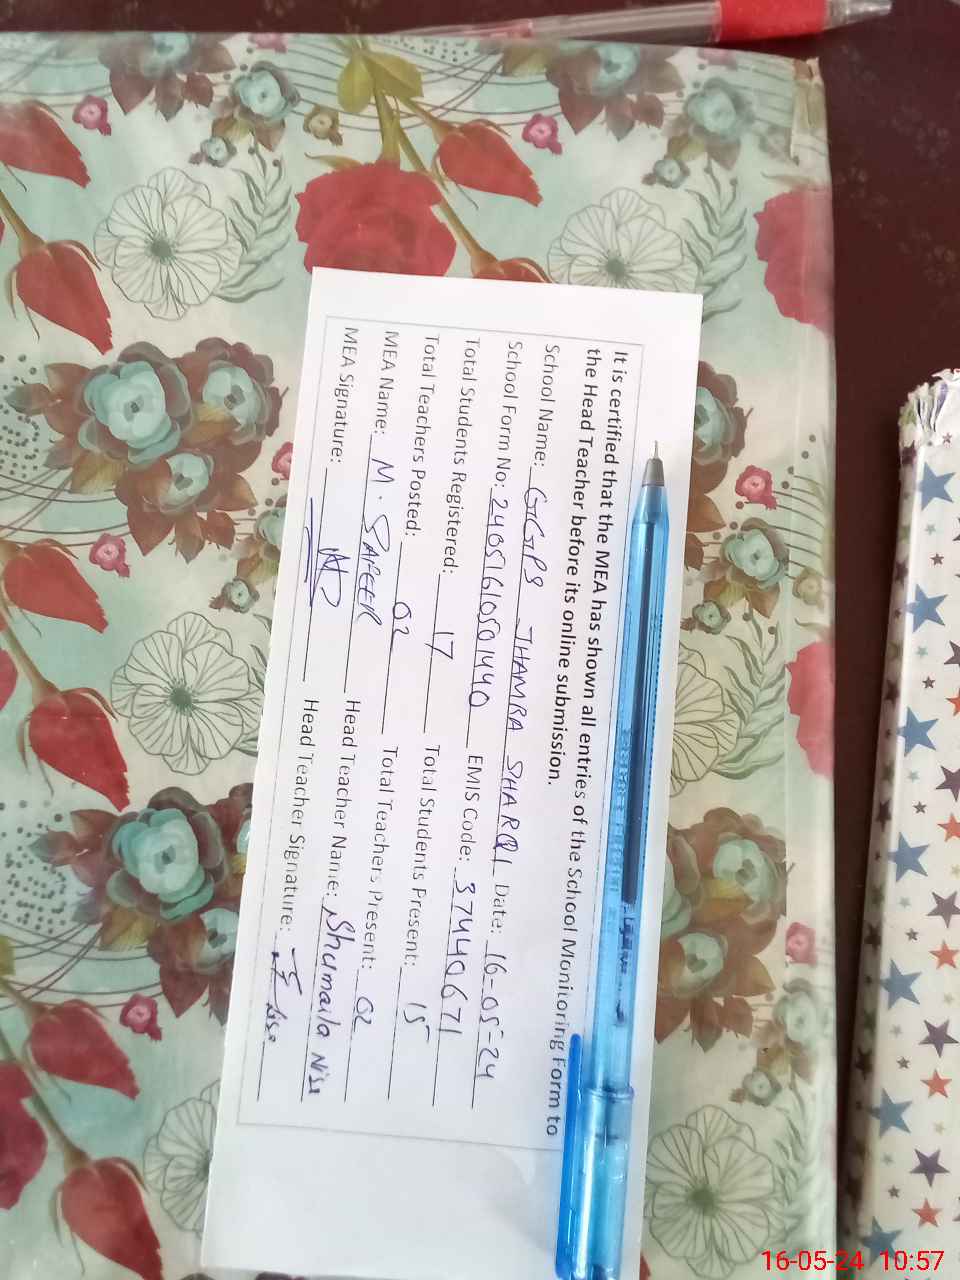 It is certified that the MEA has shown all entries of the School Monitoring Form to
the Head Teacher before its online submission.
School Name: GGPS JHAMRA SHARQI Date: 16-05-24
School Form No: 24051610501440 EMIS Code: 37440671
Total Students Registered: 17 Total Students Present: 15
Total Teachers Posted: 02 Total Teachers Present: 02
MEA Name: M. SAFEER Head Teacher Name: Shumaila Nisa
MEA Signature: Head Teacher Signature:
16-05-24 10:57